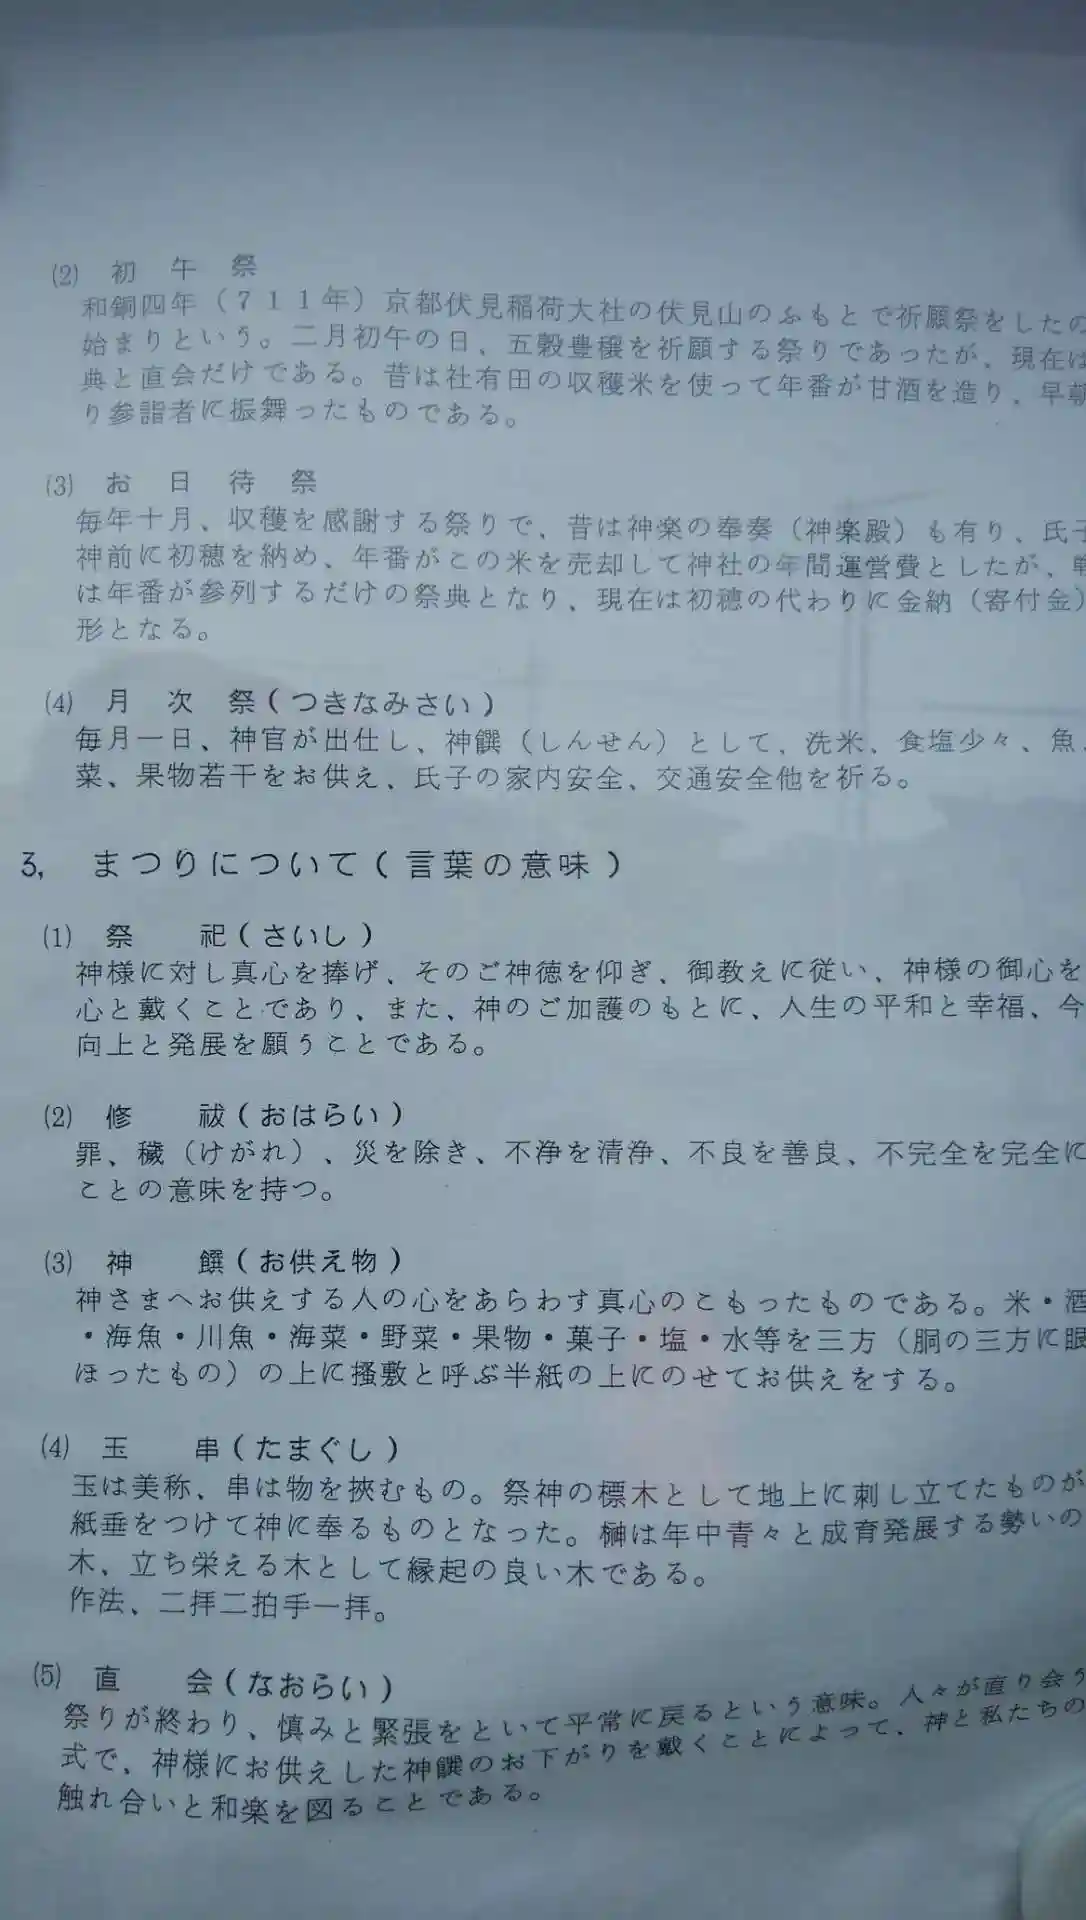 (2) 初午祭
和銅四年(711年)京都伏見稲荷大社の伏見山のふもとで祈願祭をしたの
始まりという。二月初午の日、五穀豊穣を祈願する祭りであったが、現在は
典と直会だけである。昔は社有田の収穫米を使って年番が甘酒を造り、早朝
り参詣者に振舞ったものである。
(3) お日待祭
毎年十月、収穫を感謝する祭りで、昔は神楽の奉奏(神楽殿)も有り、氏子
神前に初穂を納め、年番がこの米を売却して神社の年間運営費としたが、
は年番が参列するだけの祭典となり、現在は初穂の代わりに金納(寄付金)
形となる。
(4) 月次祭(つきなみさい)
毎月一日、神官が出仕し、神饌(しんせん)として、洗米、食塩少々、魚、
菜、果物若干をお供え、氏子の家内安全、交通安全他を祈る。
3, まつりについて(言葉の意味)
(1) 祭祀(さいし)
神様に対し真心を捧げ、そのご神徳を仰ぎ、御教えに従い、神様の御心を
心と戴くことであり、また、神のご加護のもとに、人生の平和と幸福、今
向上と発展を願うことである。
(2) 修祓(おはらい)
罪、穢(けがれ)、災を除き、不浄を清浄、不良を善良、不完全を完全に
ことの意味を持つ。
(3) 神饌(お供え物)
神さまへお供えする人の心をあらわす真心のこもったものである。米・酒
・海魚・川魚・海菜・野菜・果物・菓子・塩・水等を三方(胴の三方に眼
ほったもの)の上に掻敷と呼ぶ半紙の上にのせてお供えをする。
(4) 玉串(たまぐし)
玉は美称、串は物を挾むもの。祭神の標木として地上に刺し立てたものが
紙垂をつけて神に奉るものとなった。榊は年中青々と成育発展する勢いの
木、立ち栄える木として縁起の良い木である。
作法、二拝二拍手一拝。
(5) 直会(なおらい)
祭りが終わり、慎みと緊張をといて平常に戻るという意味。人々が直り会う
式で、神様にお供えした神饌のお下がりを戴くことによって、神と私たちの
触れ合いと和楽を図ることである。